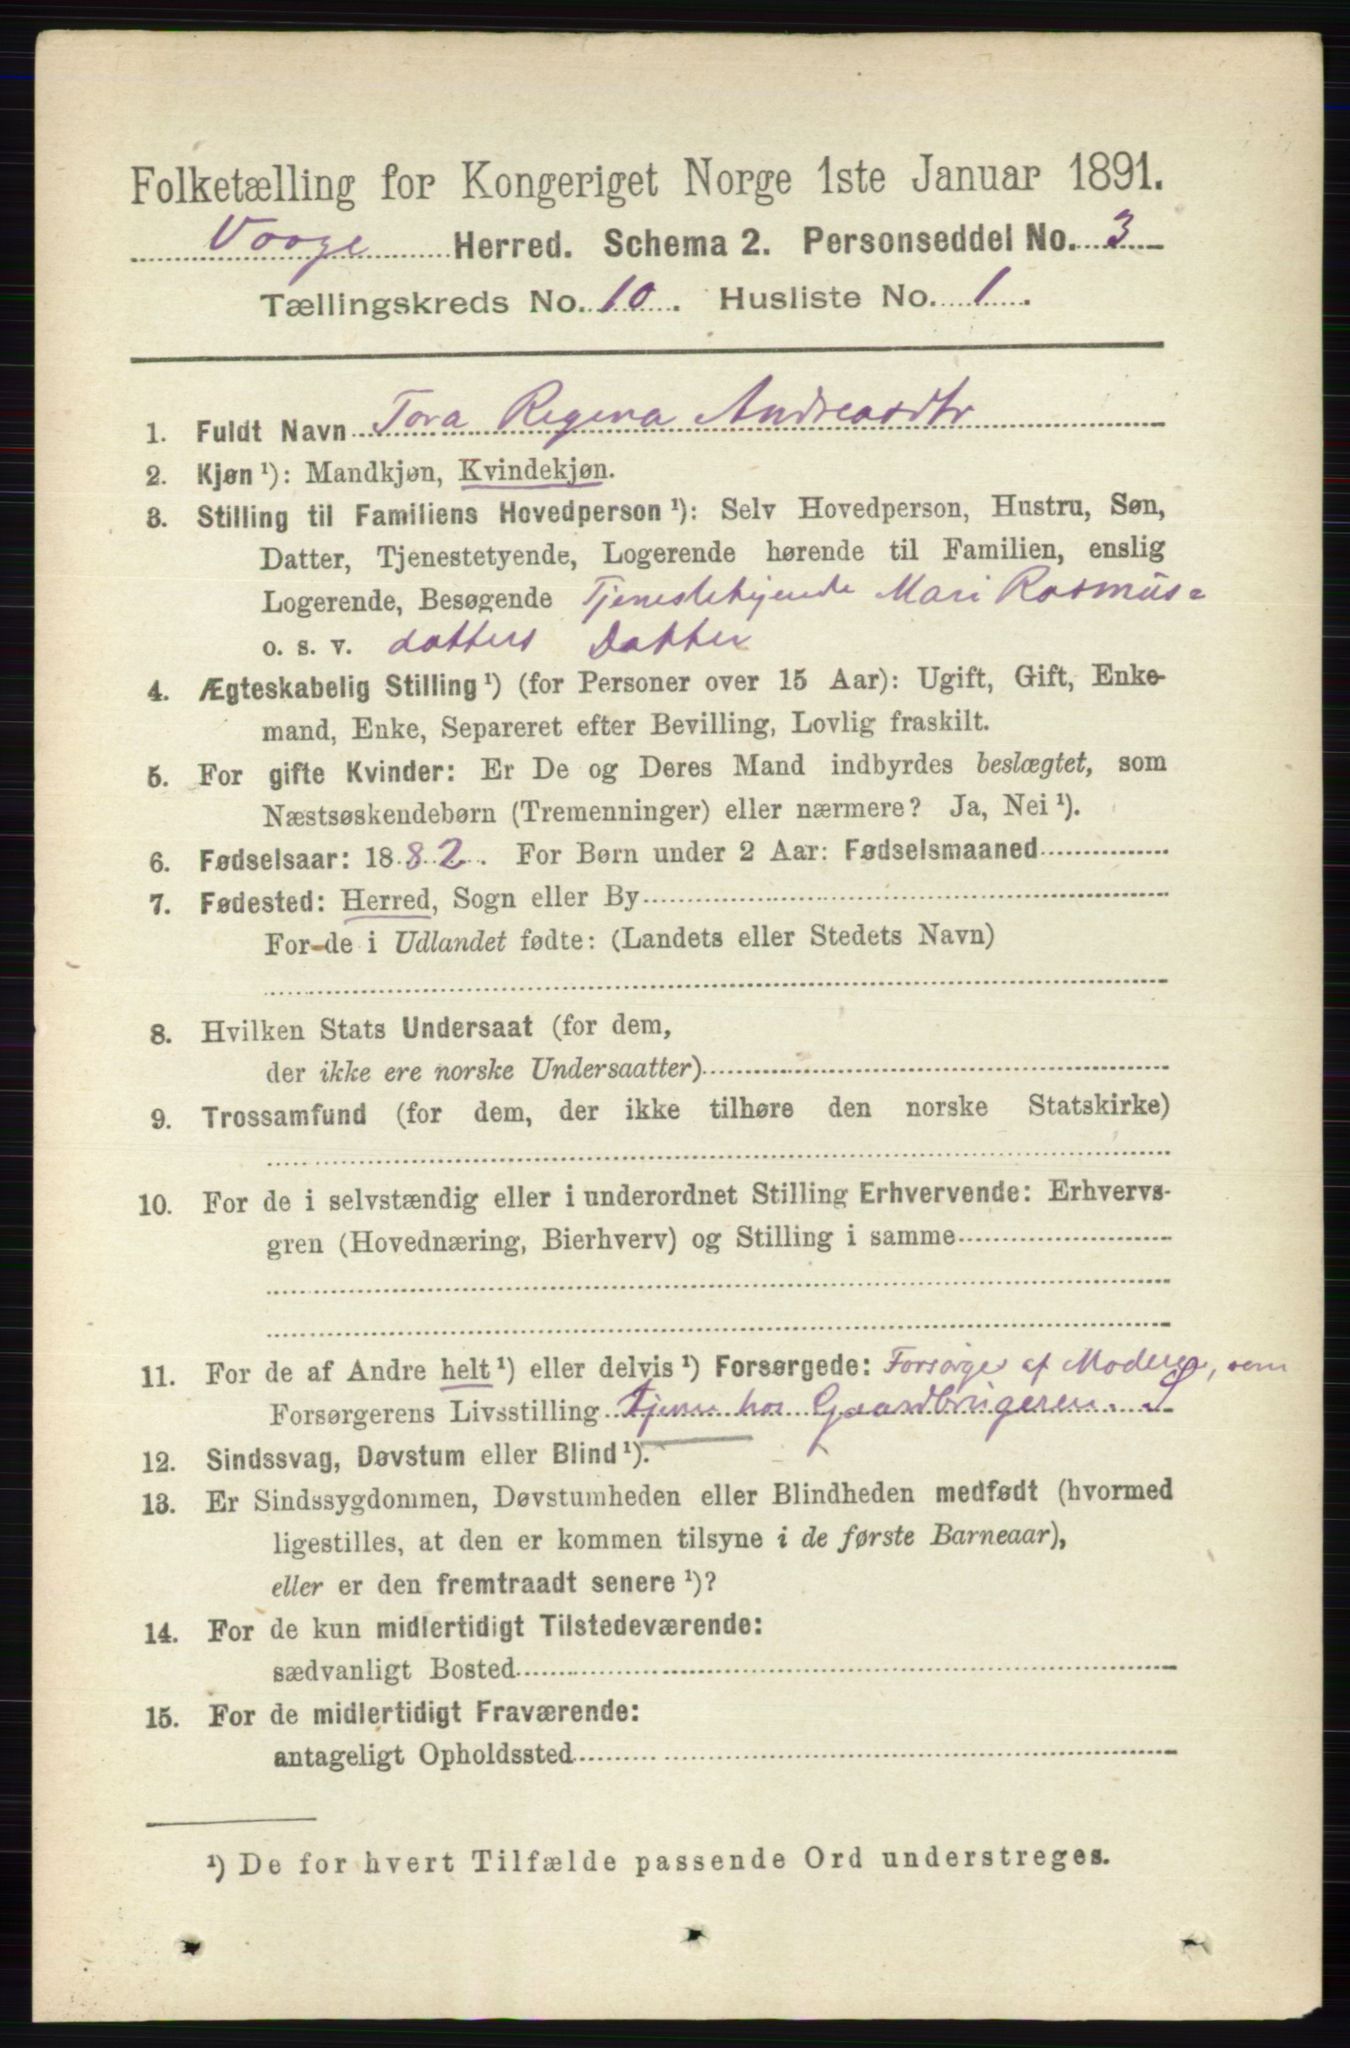 Folketælling for Kongeriget Norge 1ste Januar 1891.
Vaage Herred. Schema 2. Personseddel No. 3
Tællingskreds No. 10. Husliste No. 1.
1. Fuldt Navn Tora Regina Andreasdtr
2. Kjøn ¹): Mandkjøn, Kvindekjøn.
3. Stilling til Familiens Hovedperson ¹): Selv Hovedperson, Hustru, Søn,
Datter, Tjenestetyende, Logerende hørende til Familien, enslig
Logerende, Besøgende Tjenestetyende Mari Rasmus=
o. s. v. datters Datter
4. Ægteskabelig Stilling ¹) (for Personer over 15 Aar): Ugift, Gift, Enke-
mand, Enke, Separeret efter Bevilling, Lovlig fraskilt.
5. For gifte Kvinder: Er De og Deres Mand indbyrdes beslægtet, som
Næstsøskendebørn (Tremenninger) eller nærmere? Ja, Nei ¹).
6. Fødselsaar: 1882. For Børn under 2 Aar: Fødselsmaaned
7. Fødested: Herred, Sogn eller By
For de i Udlandet fødte: (Landets eller Stedets Navn)
8. Hvilken Stats Undersaat (for dem,
der ikke ere norske Undersaatter)
9. Trossamfund (for dem, der ikke tilhøre den norske Statskirke)
10. For de i selvstændig eller i underordnet Stilling Erhvervende: Erhvervs-
gren (Hovednæring, Bierhverv) og Stilling i samme
11. For de af Andre helt ¹) eller delvis ¹) Forsørgede: Forsørges af Moderen, som
Forsørgerens Livsstilling tjener hos Gaardbrugeren.
12. Sindssvag, Døvstum eller Blind ¹).
13. Er Sindssygdommen, Døvstumheden eller Blindheden medfødt (hvormed
ligestilles, at den er kommen tilsyne i de første Barneaar),
eller er den fremtraadt senere ¹)?
14. For de kun midlertidigt Tilstedeværende:
sædvanligt Bosted
15. For de midlertidigt Fraværende:
antageligt Opholdssted
¹) De for hvert Tilfælde passende Ord understreges.